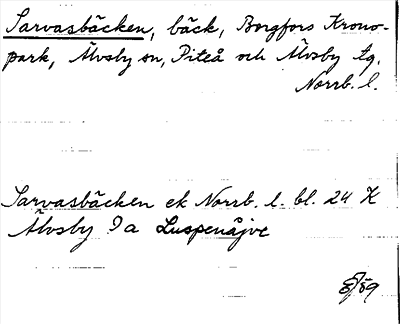 Sarvasbäcken, bäck, Borgfors Krono-
park, Älvsby sn, Piteå och Älvsby tg.
Norrb. l.
Sarvasbäcken ek Norrb. l. bl. 24 K
Älvsby 9a Luspenåjve